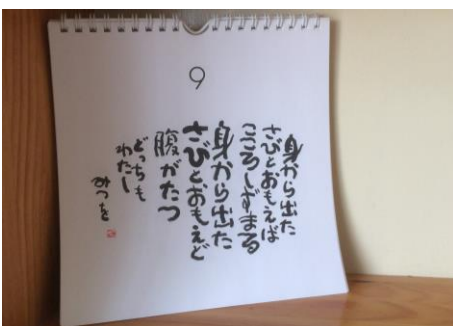 9
身から出た
さびとおもえば
こころしずまる
身から出た
さびとおもえど
腹がたつ
どっちも
わたし
みつを